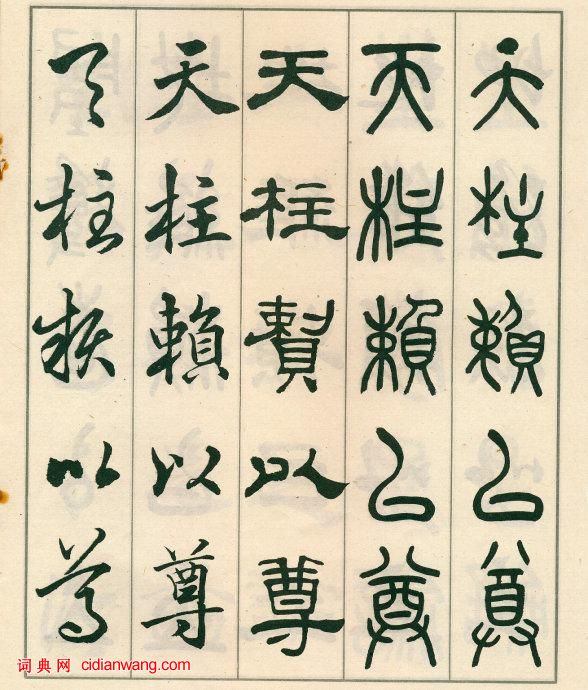 天柱賴以尊
天柱賴以尊
天柱賴以尊
天柱賴以尊
天柱賴以尊
词典网 cidianwang.com